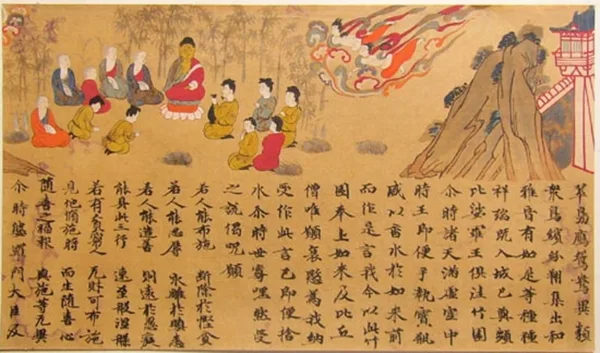 鴛鴦異類
衆鳥繽紛翔集出和
雅音有如是等種種
祥瑞既入城已與頻
比娑羅王俱往竹園
尒時諸天滿虛空中
時王即便手執寶瓶
盛以香水於如来前
而作是言我今以此竹
園奉上如来及比丘
僧唯願哀愍為我納
受作此言已即便捨
水尒時世尊嘿然受
之說偈呪願
若人能布施 斷除於慳貪
若人能忍辱 永離於瞋恚
若人能造善 則遠於愚癡
能具此三行 速至般涅槃
若有貧窮人 无財可布施
見他脩施時 而生随喜心
随喜之福報 與施等无異
尒時 門大臣及